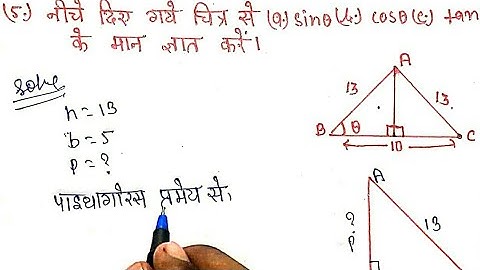 (5.) नीचे दिए गये चित्र से (a.) sinθ (b.) cosθ (c.) tan
के मान ज्ञात करें।
Solve
h = 13
b = 5
p = ?
पाइथागोरस प्रमेय से,
A
13
13
B
θ
C
10
A
?
p
13